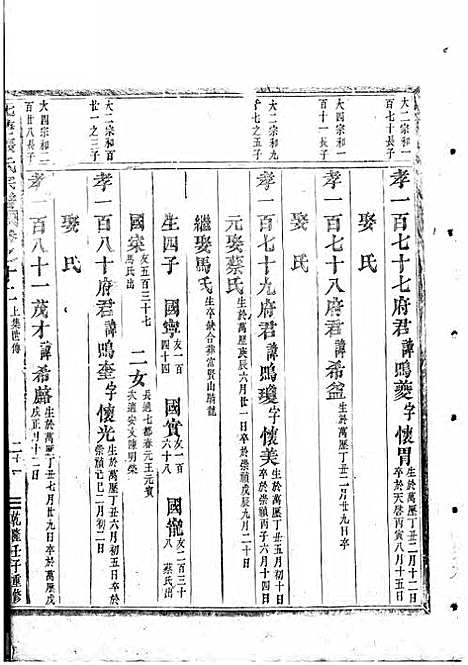 大二宗和一百七十長子
孝一百七十七府君諱鳴夔字懷胃生於萬歷丁丑二月十二日卒於天啓丙寅八月十五日
娶氏
大四宗和一百十一長子
孝一百七十八府君諱希盆生於萬歷丁丑二月廿九日卒
娶氏
大二宗和九十七之五子
孝一百七十九府君諱鳴瓊字懷美生於萬歷丁丑五月初十日卒於崇禎丙子六月十四日
元娶蔡氏生於萬歷庚辰六月廿一日卒於崇禎庚辰九月二十日
繼娶馬氏生卒缺合葬富賢山騎龍
生四子 國寧友一百四十四 國賓友一百八 國龍友二百三十八 蔡氏出
國寀友五百三十七馬氏出 二女長適七都春元王元賓次適安文陳明榮
大二宗和百廿一之三子
孝一百八十府君諱鳴奎字懷光生於萬歷丁丑六月初五日卒於崇禎己巳二月初二日
娶氏
大四宗和二百廿八長子
孝一百八十一茂才諱希麟生於萬歷丁丑七月廿二日卒於萬歷戊戌正月十二日
上集世傳
乾隆壬子重修